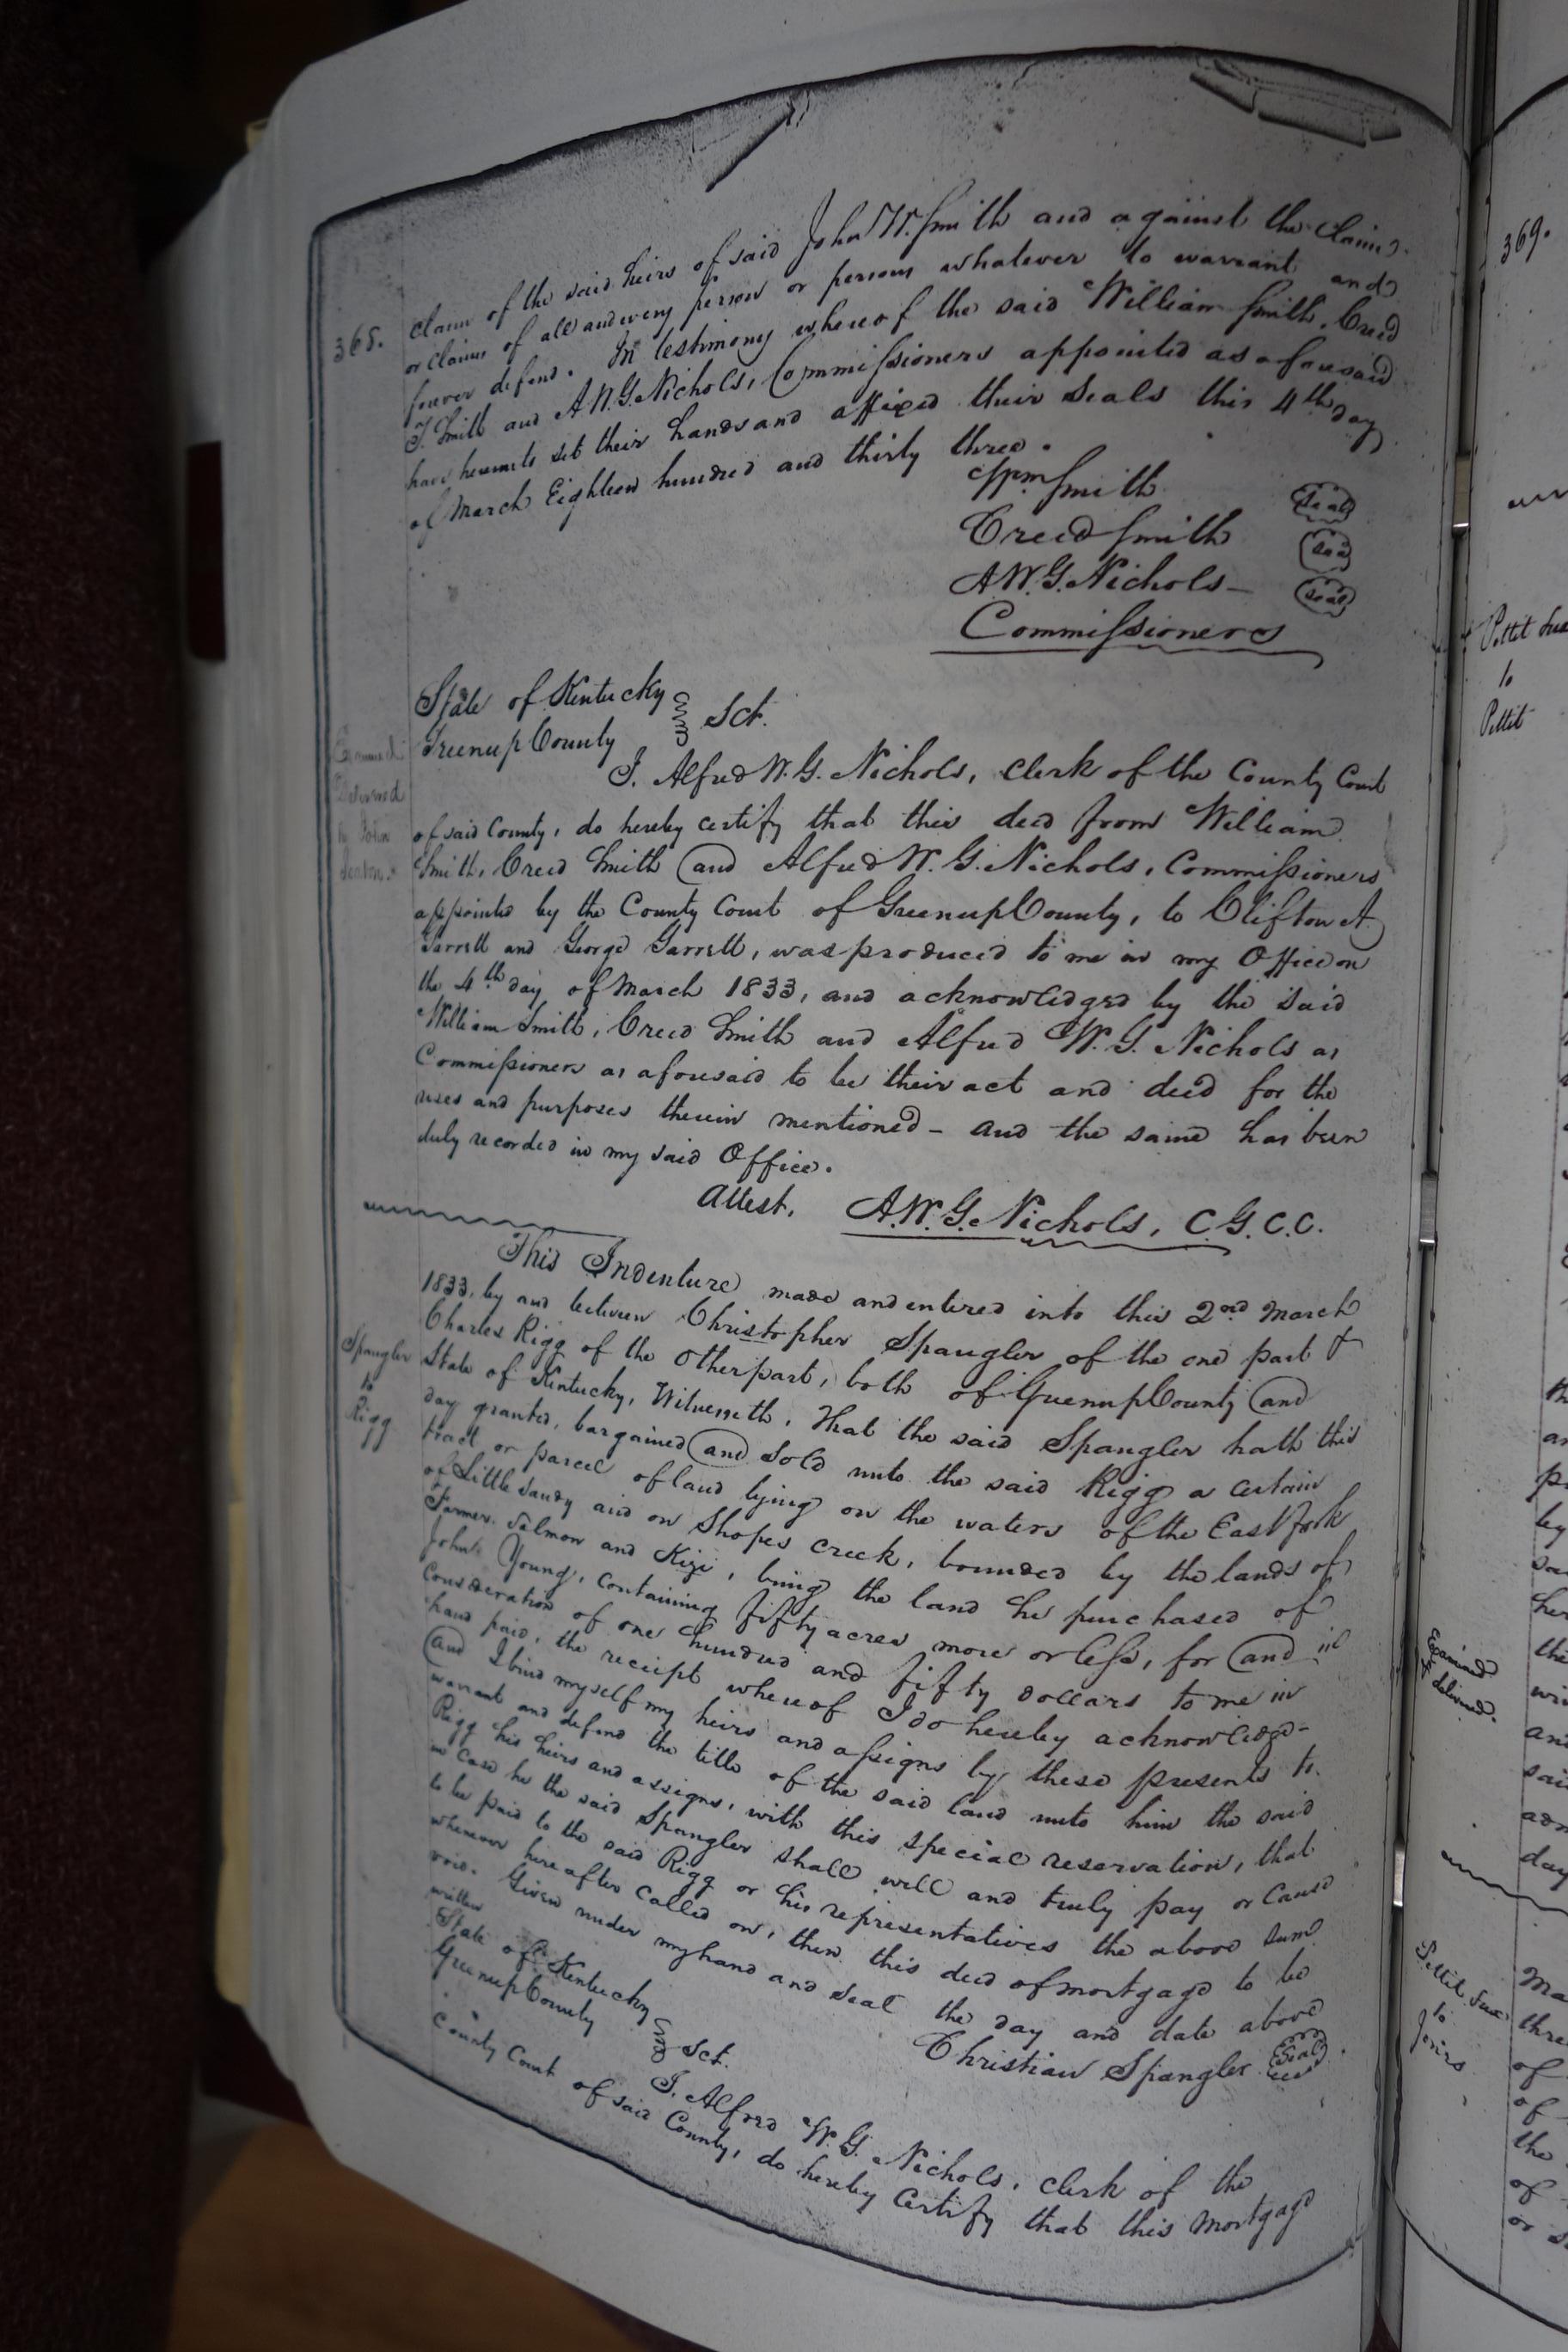 368.
claim of the said heirs of said John W. Smith and against the claim
or claims of all and every person or persons whatever to warrant and
forever defend. In testimony whereof the said William Smith, Creed
S. Smith and A W. G. Nichols, Commissioners appointed as aforesaid
have hereunto set their hands and affixed their Seals this 4th day
of March Eighteen hundred and thirty three.
Wm Smith Seal
Creed Smith Seal
A. W. G. Nichols — Seal
Commissioners
State of Kentucky
Greenup County Sct.
Examined
Delivered
to John
I. Alfred W. G. Nichols, Clerk of the County Court
of said County, do hereby certify that this deed from William
Smith, Creed Smith and Alfred W. G. Nichols, Commissioners
appointed by the County Court of Greenup County, to Clifton A
Garrett and George Garrett, was produced to me in my Office on
the 4th day of March 1833, and acknowledged by the said
William Smith, Creed Smith and Alfred W. G. Nichols as
Commissioners as aforesaid to be their act and deed for the
uses and purposes therein mentioned — and the same has been
duly recorded in my said Office.
Attest, A. W. G. Nichols, C. G. C. C.
Spangler
to
Rigg
This Indenture made and entered into this 2nd March
1833, by and between Christopher Spangler of the one part &
Charles Rigg of the other part, both of Greenup County and
State of Kentucky, Witnesseth, That the said Spangler hath this
day granted, bargained and sold unto the said Rigg a certain
tract or parcel of land lying on the waters of the East fork
of Little Sandy and on Shopes creek, bounded by the lands of
Farmer, Salmon and Kizi, being the land he purchased of
John Young, containing fifty acres more or less, for and in
consideration of one hundred and fifty dollars to me in
hand paid, the receipt whereof I do hereby acknowledge
and I bind myself my heirs and assigns by these presents to
warrant and defend the title of the said land unto him the said
Rigg his heirs and assigns, with this special reservation, that
in case he the said Spangler shall well and truly pay or cause
to be paid to the said Rigg or his representatives the above sum
whenever hereafter called on, then this deed of mortgage to be
void. Given under my hand and seal the day and date above
written
Christian Spangler Seal
State of Kentucky
Greenup County Sct.
I. Alfred W. G. Nichols, clerk of the
County Court of said County, do hereby certify that this Mortgage
369.
Pettit
to
Pettit
Examined
& delivered.
Pettit
to